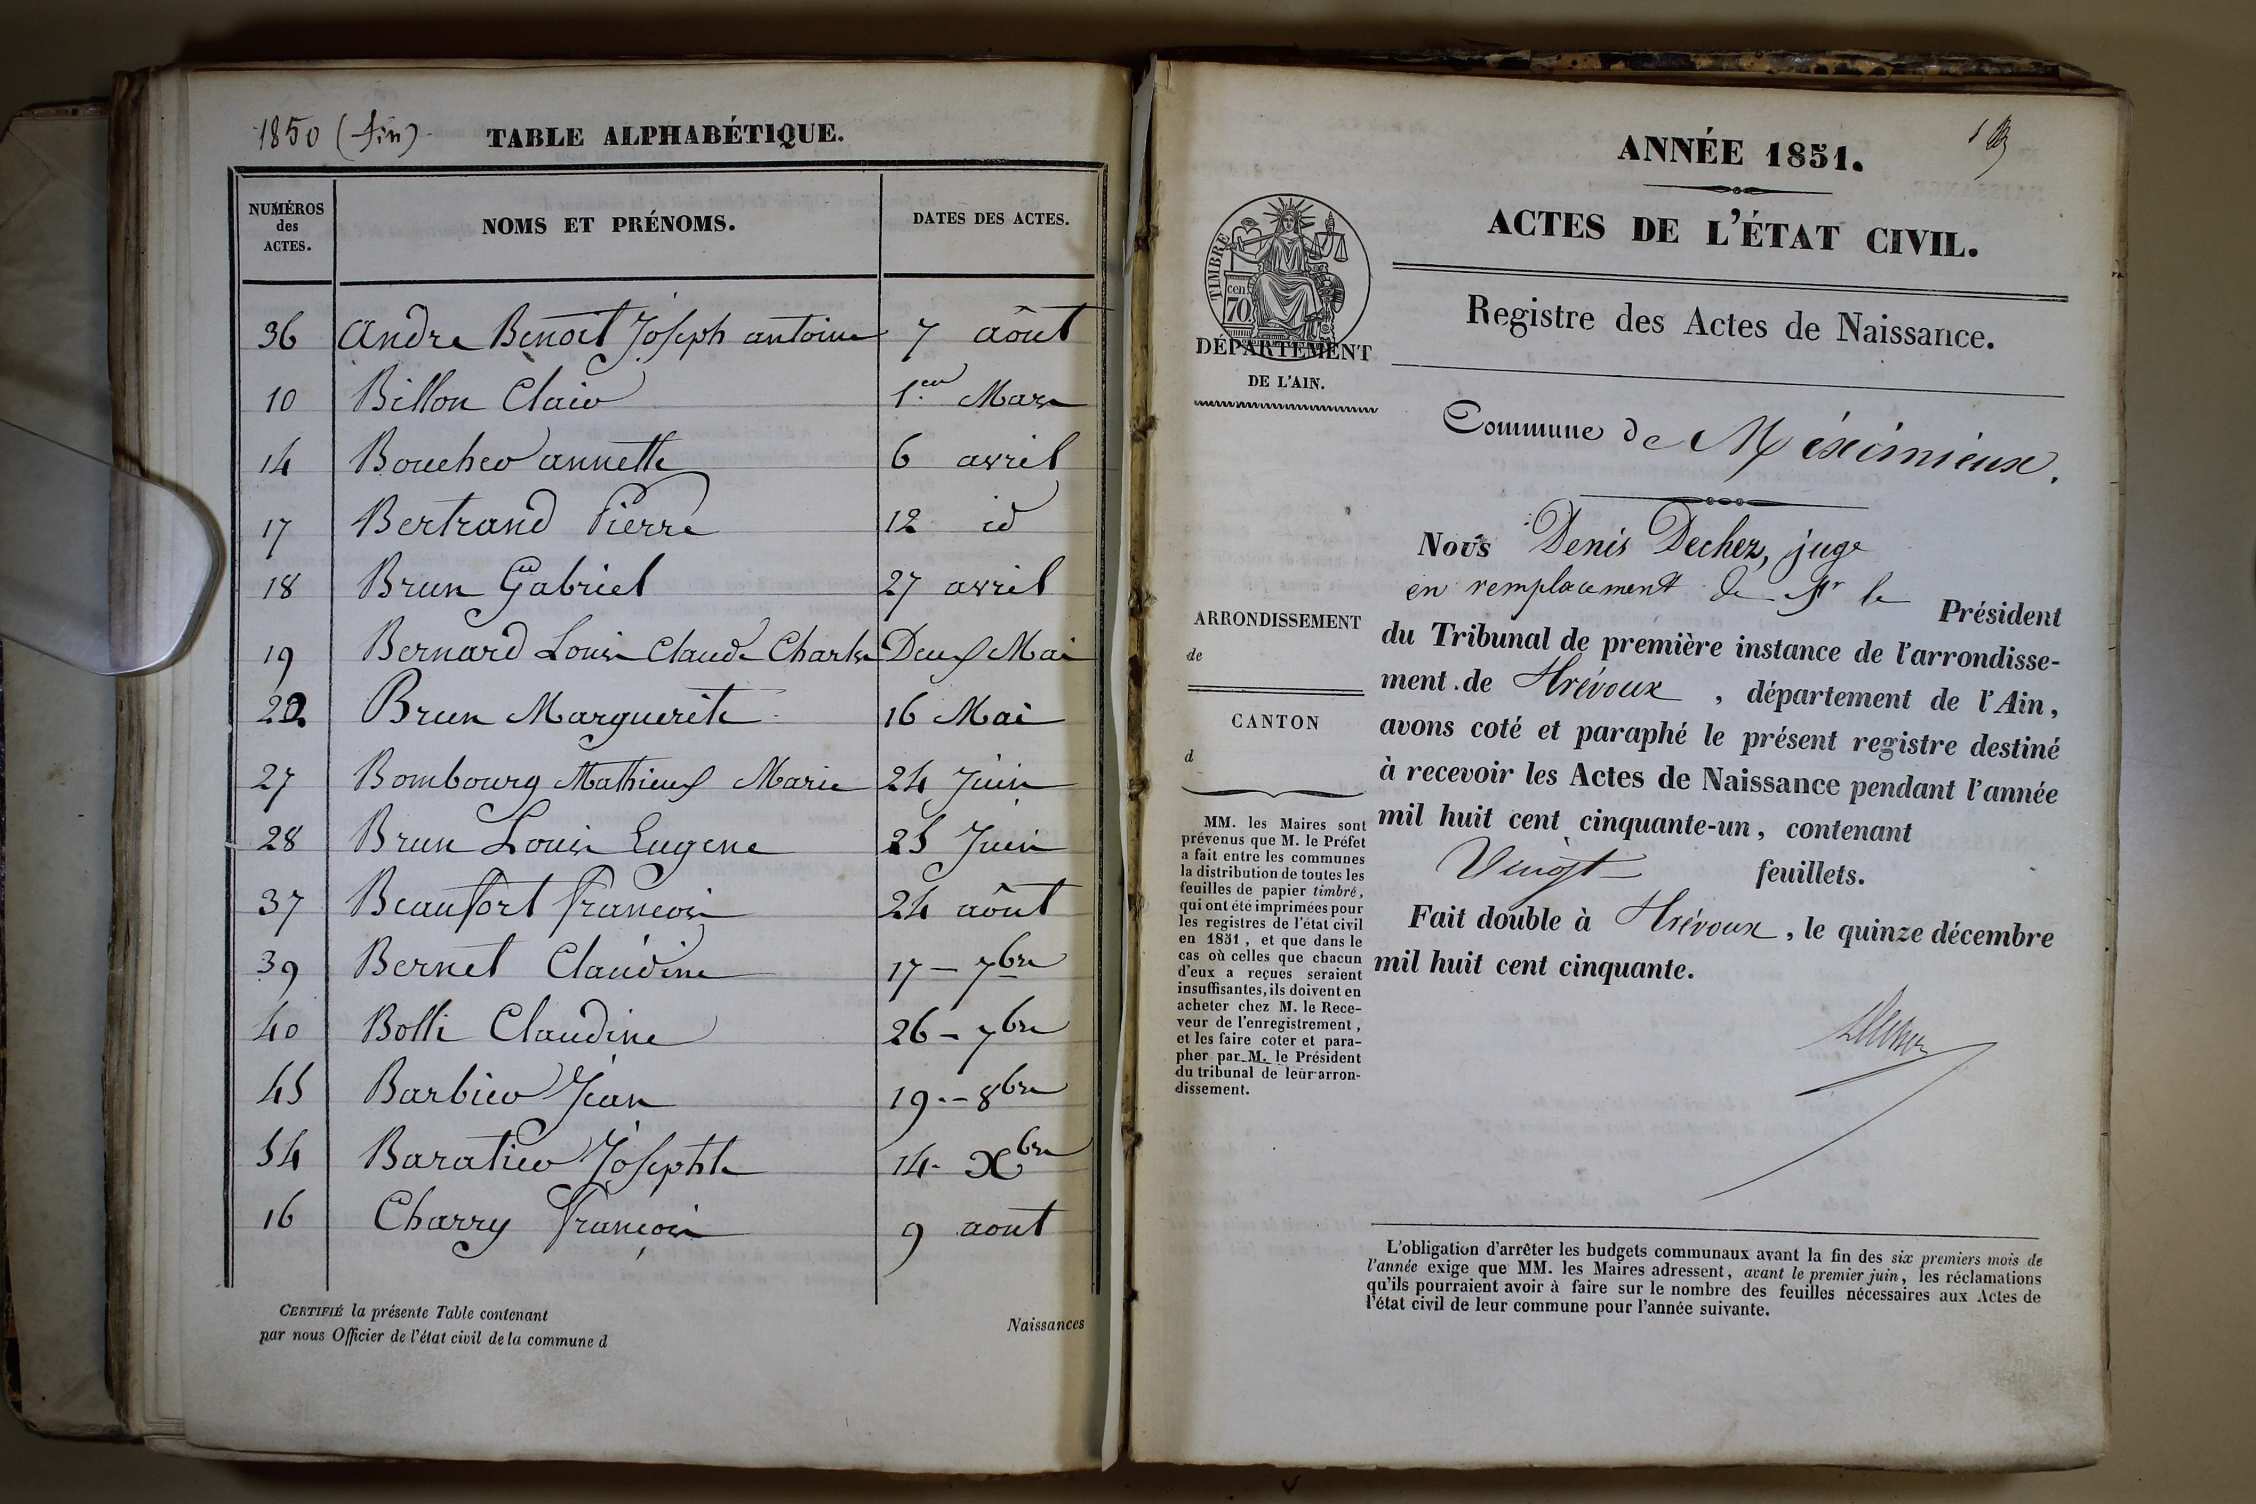 1850 (fin)
TABLE ALPHABÉTIQUE.
NUMÉROS
des
ACTES.
NOMS ET PRÉNOMS.
DATES DES ACTES.
36 andre Benoit Joseph antoine 7 aôut
10 Billon Claire 1.er Mars
14 Boucher annette 6 avril
17 Bertrand Pierre 12 id
18 Brun Gabriel 27 avril
19 Bernard Louis Claude Charles Deux Mai
22 Brun Marguerite 16 Mai
27 Bombourg Mathieux Marie 24 Juin
28 Brun Louis Eugene 25 Juin
37 Beaufort françois 24 aôut
39 Bernet Claudine 17 – 7bre
40 Bolli Claudine 26 – 7bre
45 Barbier Jean 19 – 8bre
54 Baratier Josephte 14 Xbre
16 Charry françois 9 aout
CERTIFIÉ la présente Table contenant
Naissances
par nous Officier de l'état civil de la commune d
ANNÉE 1851.
ACTES DE L'ÉTAT CIVIL.
TIMBRE
cen
70
DÉPARTEMENT
DE L'AIN.
Registre des Actes de Naissance.
Commune de Méximieux.
ARRONDISSEMENT
de
CANTON
d
MM. les Maires sont
prévenus que M. le Préfet
a fait entre les communes
la distribution de toutes les
feuilles de papier timbré,
qui ont été imprimées pour
les registres de l'état civil
en 1851, et que dans le
cas où celles que chacun
d'eux a reçues seraient
insuffisantes, ils doivent en
acheter chez M. le Rece-
veur de l'enregistrement,
et les faire coter et para-
pher par M. le Président
du tribunal de leur arron-
dissement.
Nous Denis Dechez, juge
en remplacement de Mr le Président
du Tribunal de première instance de l'arrondisse-
ment de Trévoux, département de l'Ain,
avons coté et paraphé le présent registre destiné
à recevoir les Actes de Naissance pendant l'année
mil huit cent cinquante-un, contenant
Vingt feuillets.
Fait double à Trévoux, le quinze décembre
mil huit cent cinquante.
L'obligation d'arrêter les budgets communaux avant la fin des six premiers mois de
l'année exige que MM. les Maires adressent, avant le premier juin, les réclamations
qu'ils pourraient avoir à faire sur le nombre des feuilles nécessaires aux Actes de
l'état civil de leur commune pour l'année suivante.